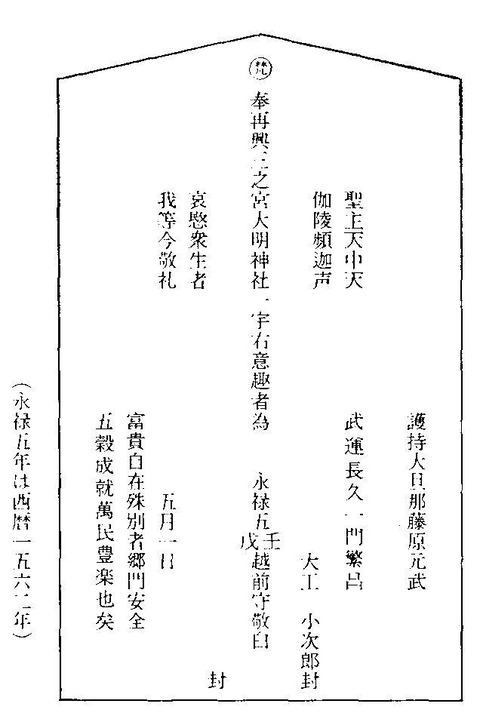 護持大旦那藤原元武
聖主天中天
武運長久一門繁昌
伽陵頻迦声
大工 小次郎封
梵
奉再興三之宮大明神社一宇右意趣者為 永禄五壬戊越前守敬白
哀愍衆生者
封
我等今敬礼
五月一日
富貴自在殊別者郷門安全
五穀成就萬民豊楽也矣
(永禄五年は西暦一五六二年)